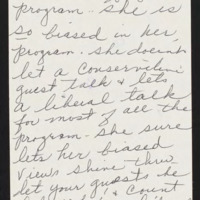 program - she is
so biased in her
program. She doesn't
let a conservative
guest talk & lets
a liberal talk
for most of all the
program - She sure
lets her biased
views shine thru
let your guests be
& count